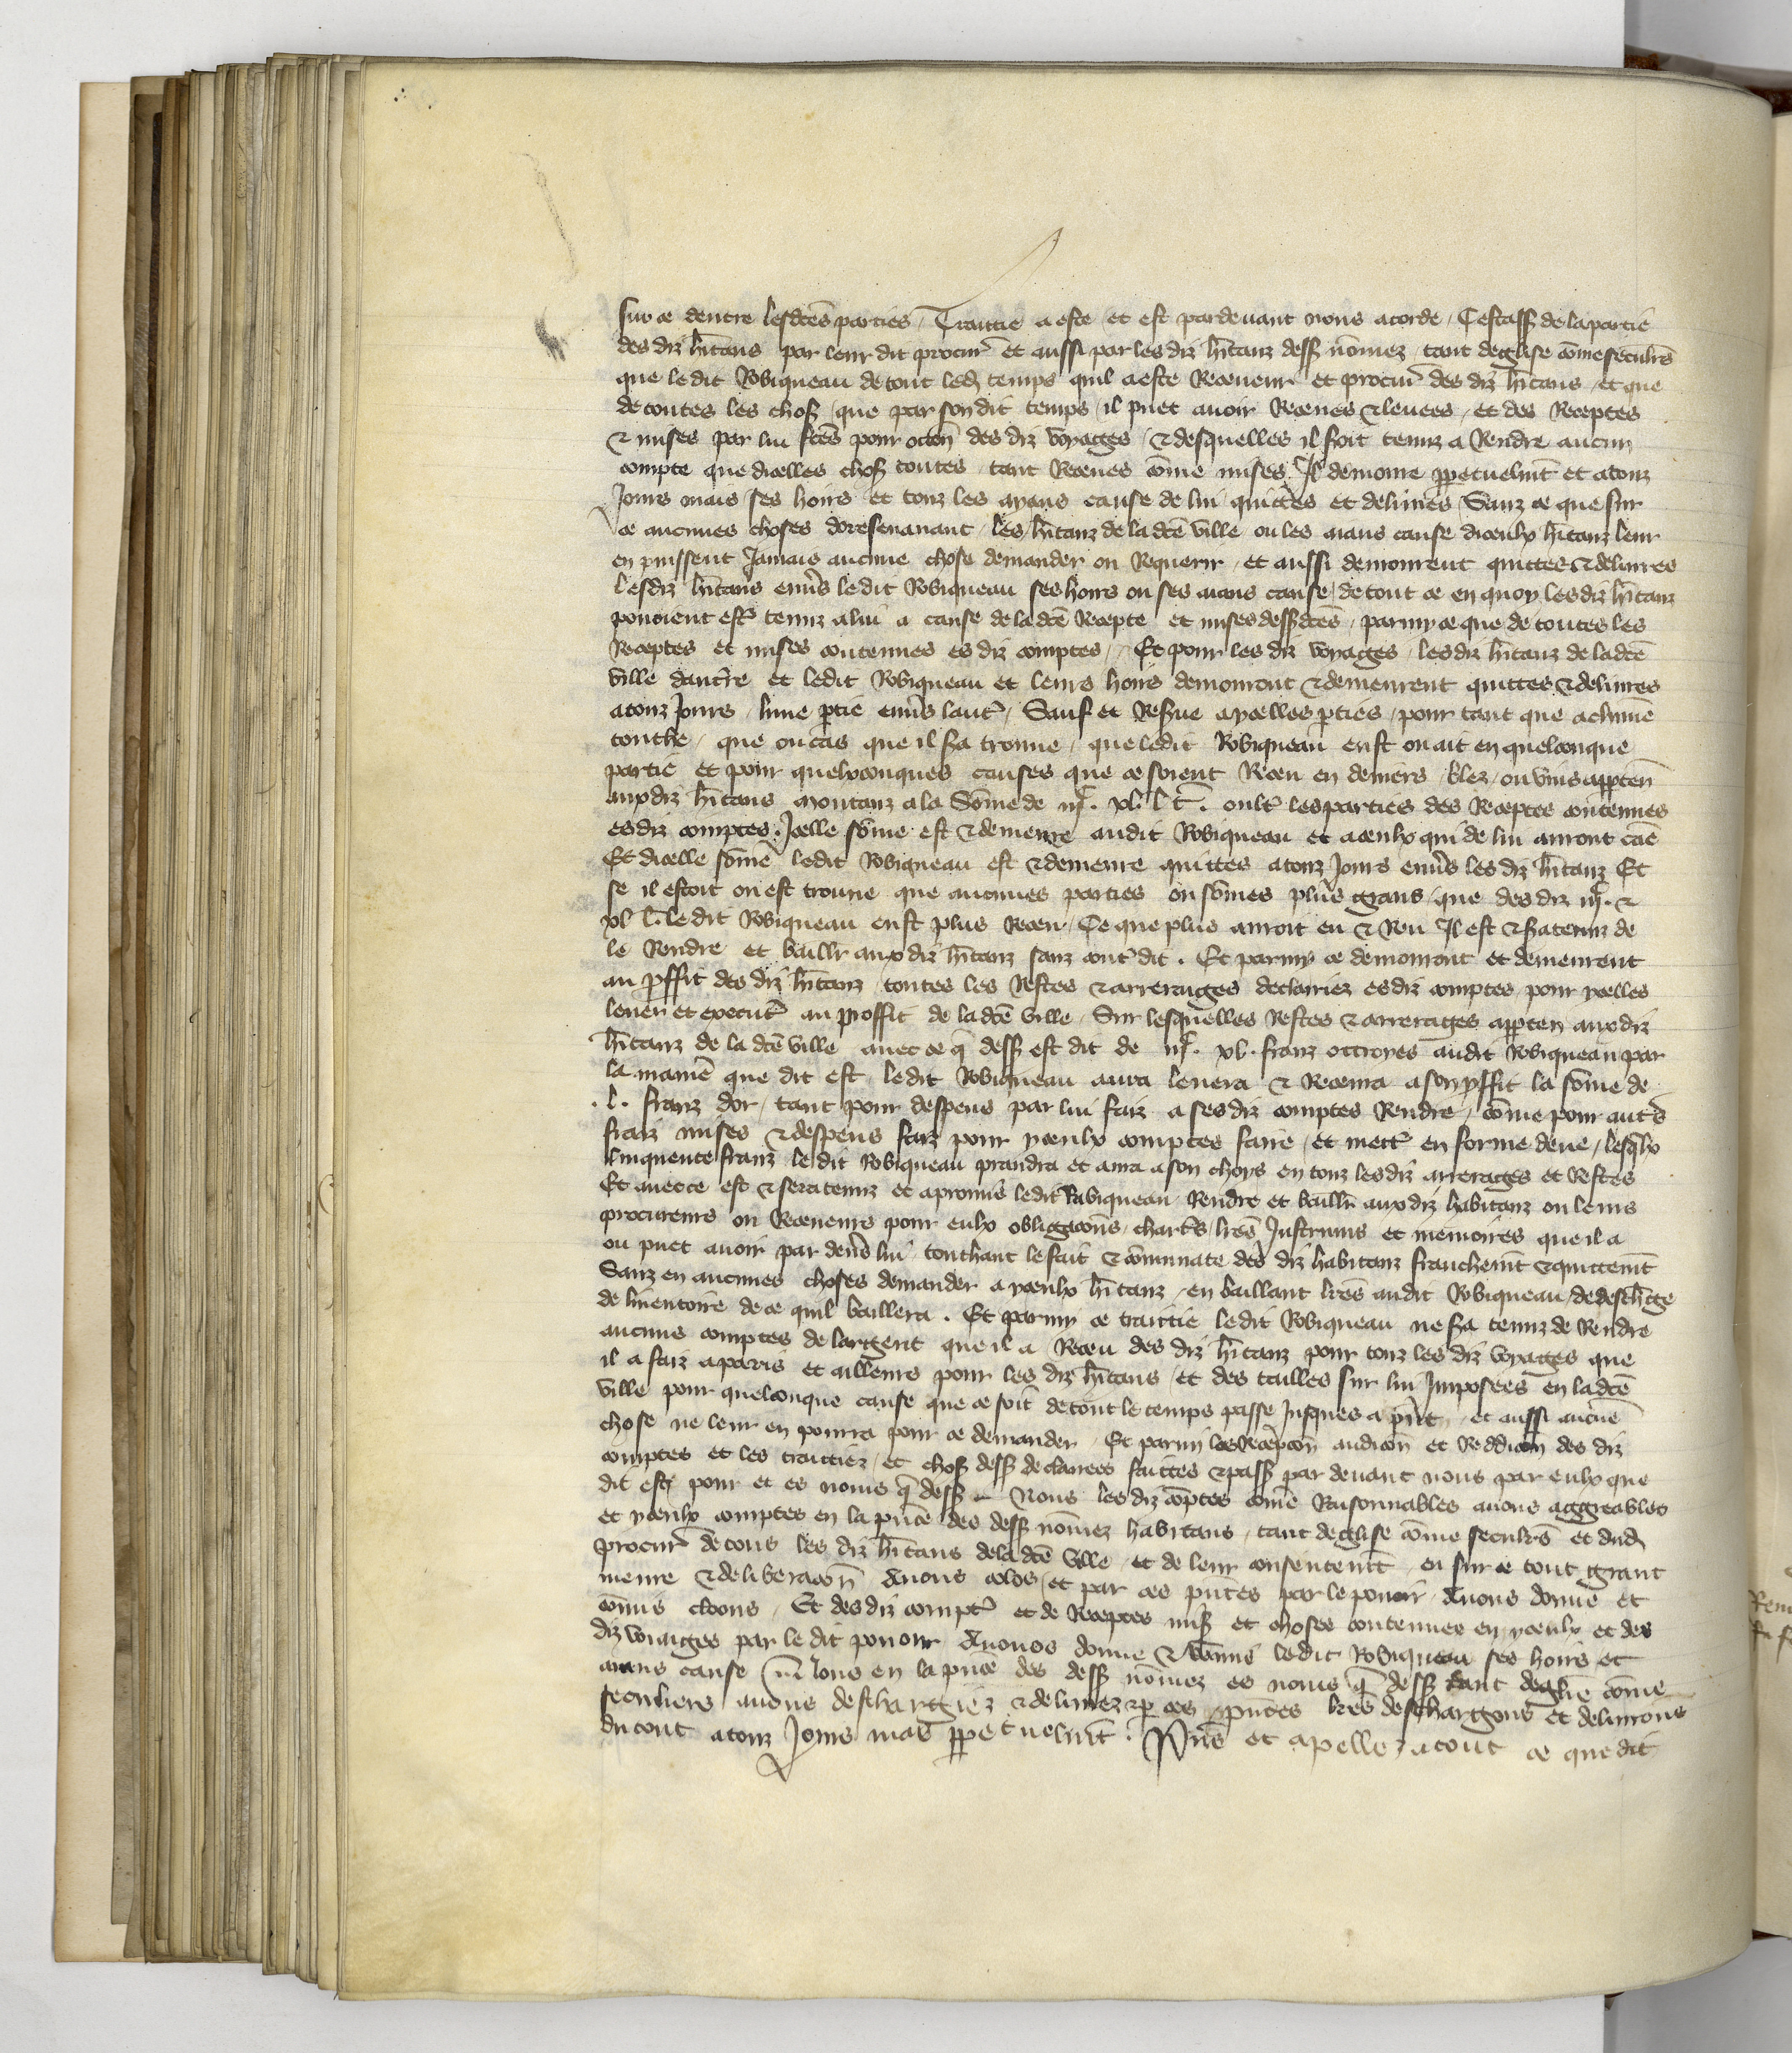 sur ce dentre lesdc̄es parties / Traittie a este et est pardeuant nous acorde / Cestass̄ de la partie
des diz hītans par leur dit procur̄ et aussi par les diz hītanz dess̄ nōmez / tant deglise cōme seculr̄s
que ledit Robiqueau de tout led̄ temps quil a este Receueur et procur̄ des diz hītans / et que
de toutes les chos̄ que par son dit temps il puet auoir Receues & leuees / et des Receptes
& mises par lui fc̄es pour occōn des diz voyages / & desquelles il soit tenuz a Rendre aucun
compte que dicelles chos̄ toutes / tant Receues cōme mises Il demoure ꝑpetuelmt̄ et a touz
Jours mais ses hoirs et touz les ayans cause de lui quittes et deliures / Sanz ce que sur
ce aucunes choses doresenauant / les hītanz de la dc̄e ville ou les aians cause diceulx hītanz leur
en puissent Jamais aucune chose demander ou Requerir / et aussi demourent quittes & deliures
lesdiz hītans enu̾s ledit Robiqueau ses hoirs ou ses aians cause / de tout ce en quoy les diz hītanz
pouoient estr̄ tenuz a lui a cause de la dc̄e Recepte et mises dess̄dc̄es / parmy ce que de toutes les
Receptes et mises contenues es diz comptes / Et pour les diz voyages / les diz hītanz de la dc̄e
ville daucr̄re et ledit Robiqueau et leurs hoirs demourent & demeurent quittes & deliures
a touz Jours / lune ꝑtie enu̾s lautr̄ / Sauf et Res̄ue a ycelles ꝑties / pour tant que a chūne
touche / que ou cas que il s̄a trouue / que ledit Robiqueau eust ou ait en quelconque
partie et pour quelxconques causes que ce soient Receu en deniers / blez / ou vins apꝑten̄
aux diz hītans montanz a la Sōme de iijc. xl. l t̄. oultr̄ les parties des Receptes contenues
es diz comptes. Icelle sōme est & demeure audit Robiqueau et a ceulx qui de lui auront cāe
Et dicelle sōme ledit Robiqueau est & demeure quittes a touz Jours enu̾s les diz hītanz Et
se il estoit ou est trouue que aucunes parties ou sōmes plus grans / que des diz iijc. &
xl l̄. ledit Robiqueau eust plus Receu / Ce que plus auroit eu & Reu Il est & s̄a tenuz de
le Rendre et baillr̄ aux diz hītanz sanz contr̄dit. Et parmy ce demourront et demeurent
au ꝓffit des diz hītanz / toutes les Restes & arrerages declairiez es diz comptes pour ycelles
leuer et executr̄ au proffit de la dc̄e ville / Sur lesquelles Restes & arrerages apꝑten aux diz
hītanz de la dc̄e ville auec ce q̄ dess̄ est dit de iijc. xl. franz ottroyes audit Robiqueau par
la manie̾ que dit est / ledit Robiqueau aura leuera & Receura a son ꝓffit la sōme de
.l. franz dor / tant pour despens par lui faiz a ses diz comptes Rendre / cōme pour autr̄s
fraiz mises & despens faiz pour yceulx comptes faire / et mettr̄ en forme deue / lesq̄lx
Cinquente franz ledit Robiqueau prandra et aura a son choys en touz les diz arrerages et Restes
Et auecce est & sera tenuz et a promis ledit Rabiqueau / Rendre et baillr̄ aux diz habitanz ou leurs
procureurs ou Receueurs pour eulx obligacōns / chartr̄s / lrēs Instrumēs et memoires que il a
ou puet auoir par deu̾s lui touchant le fait & cōmunate des diz habitanz franchemt̄ & quittemt̄
Sanz en aucunes choses demander a yceulx hītanz / en baillant lrēs audit Robiqueau / de desch̄ge
de linuentoire de ce quil baillera. Et parmy ce traittie ledit Robiqueau ne s̄a tenuz de Rendre
aucuns comptes de largent que il a Receu des diz hītanz pour touz les diz voyages que
il a faiz a paris et ailleurs pour les diz hītans / et des tailles sur lui Imposees en la dc̄e
ville pour quelconque cause que ce soit de tout le temps passe Jusques a pn̄t / et aussi aucūe
chose ne leur en pourra pour ce demander / Et parmi les Recepcōn audicōn et Reddicōn des diz
comptes et les traittiez / et chos̄ dess̄ declairees faittes & pass̄ par deuant nous par eulx que
dit est / pour et es noms q̄ dess̄ Nous les diz cōptes cōme Raisonnables auons aggreables
et yceulx comptes en la pn̄ce des dess̄ nōmez habitans / tant deglise cōme seculr̄s et dud̄
procur̄ de touz les diz hītans de la dc̄e ville / et de leur consentemt̄ / eu sur ce tout grant
meure & deliberacōn Auons colos / et par ces pn̄tes par le pouoir / Auons donne et
cōmis cloons / Et des diz comptr̄ et de Receptes mis̄ et choses contenues en yceulx et des
diz voiaiges par ledit pouoir Auons donne & cōmis ledit Robiqueau ses hoirs et
aians cause Nous en la pn̄ce des dess̄ nōmez es noms q̄ dess̄ tant deglīe cōme
seculiers auons deschargiez & deliurez & ꝑ ces pn̄tes lrēs deschargons et deliurons
du tout a touz Jours mais ꝑpetuelmt̄. Pn̄s et apellez a tout ce que dit